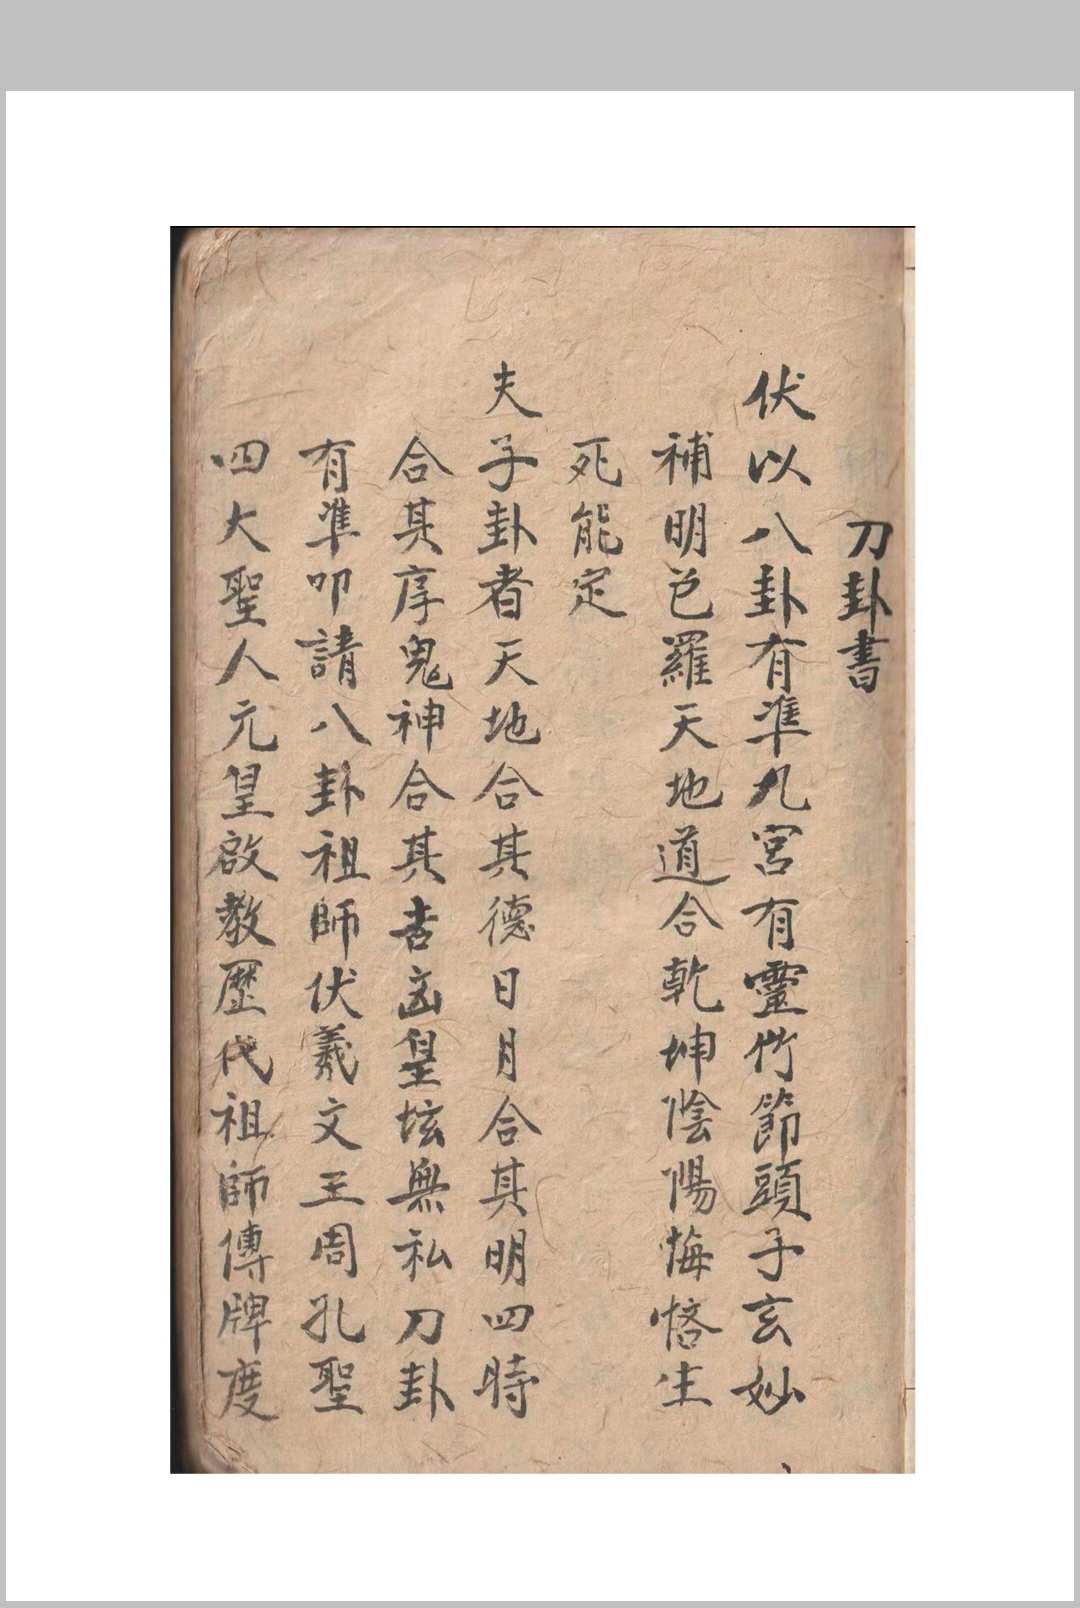 刀卦書
伏以八卦有準九宮有靈竹節頭子玄妙
補明包羅天地道合乾坤陰陽悔悋生
死能定
夫子卦者天地合其德日月合其明四時
合其序鬼神合其吉凶皇壇無私刀卦
有準叩請八卦祖師伏羲文王周孔聖
四大聖人元皇啟教歷代祖師傅牌度